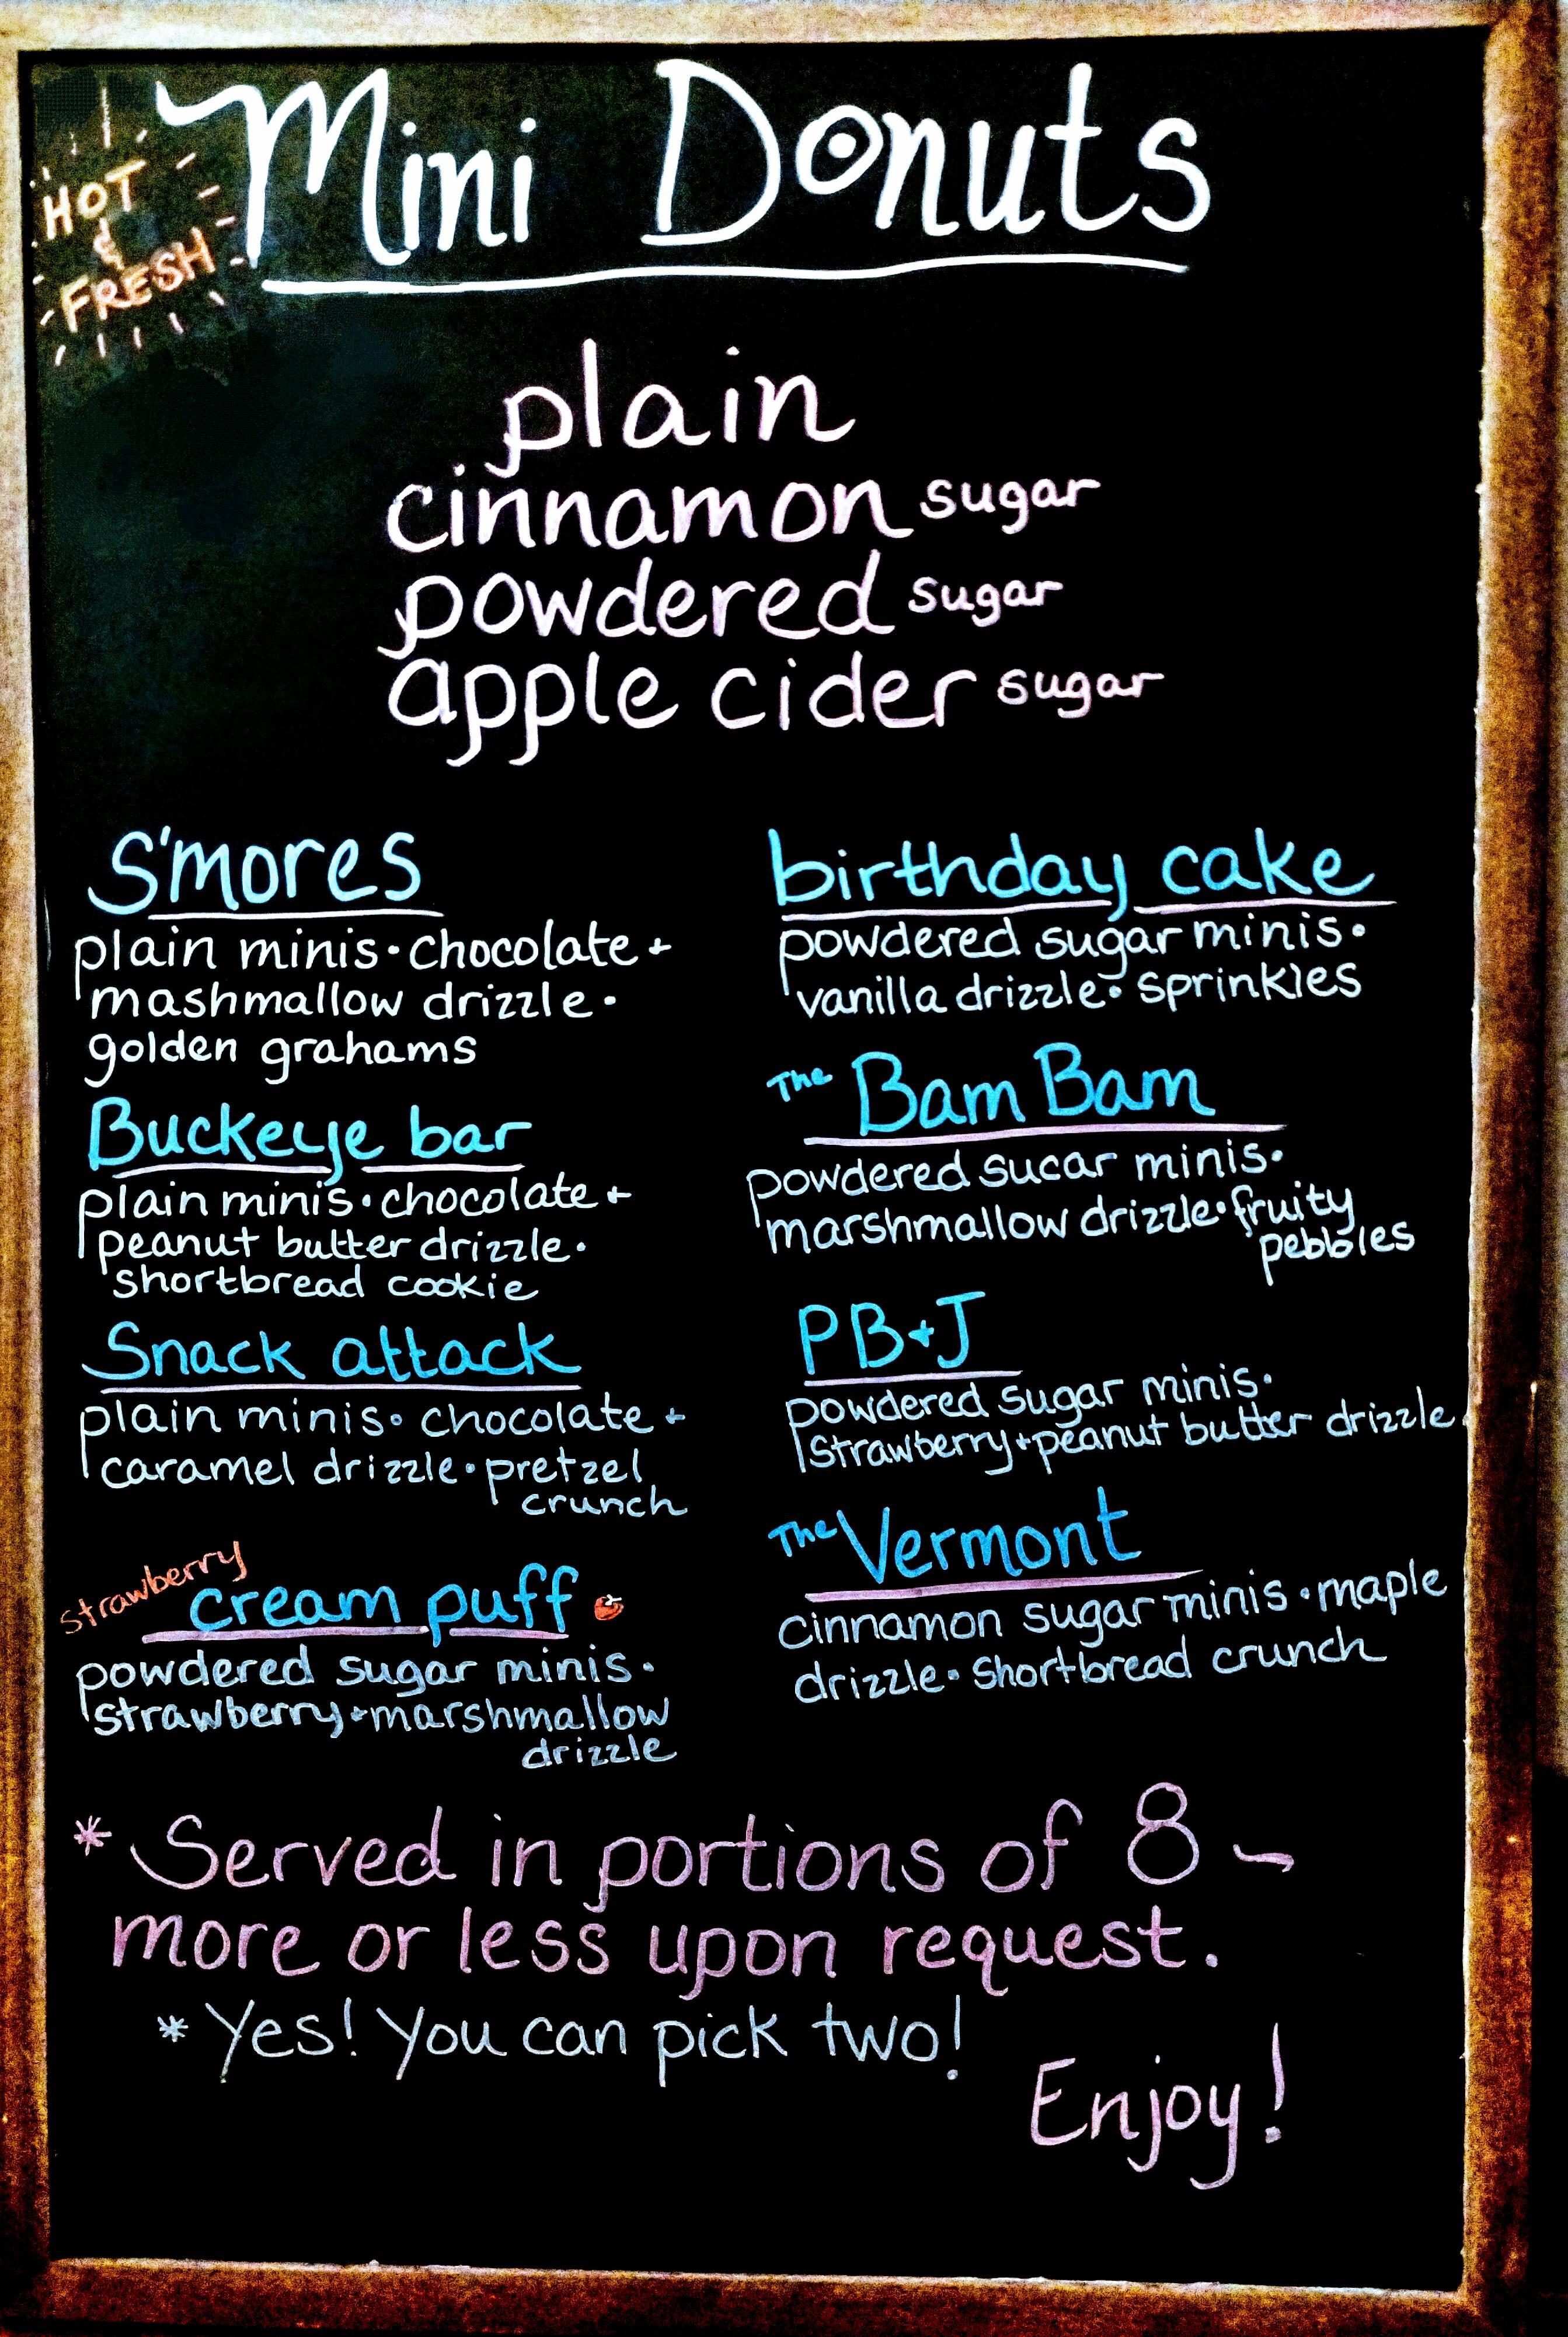 Mini Donuts
HOT
&
FRESH
plain
cinnamon sugar
powdered sugar
apple cider sugar
S'mores
plain minis • chocolate +
mashmallow drizzle •
golden grahams
Buckeye bar
plain minis • chocolate +
peanut butter drizzle •
shortbread cookie
Snack attack
plain minis • chocolate +
caramel drizzle • pretzel
crunch
strawberry
cream puff
powdered sugar minis •
strawberry + marshmallow
drizzle
birthday cake
powdered sugar minis •
vanilla drizzle • sprinkles
The Bam Bam
powdered sucar minis •
marshmallow drizzle • fruity
pebbles
PB+J
powdered sugar minis •
strawberry + peanut butter drizzle
The Vermont
cinnamon sugar minis • maple
drizzle • shortbread crunch
* Served in portions of 8 ~
more or less upon request.
* Yes! You can pick two!
Enjoy!